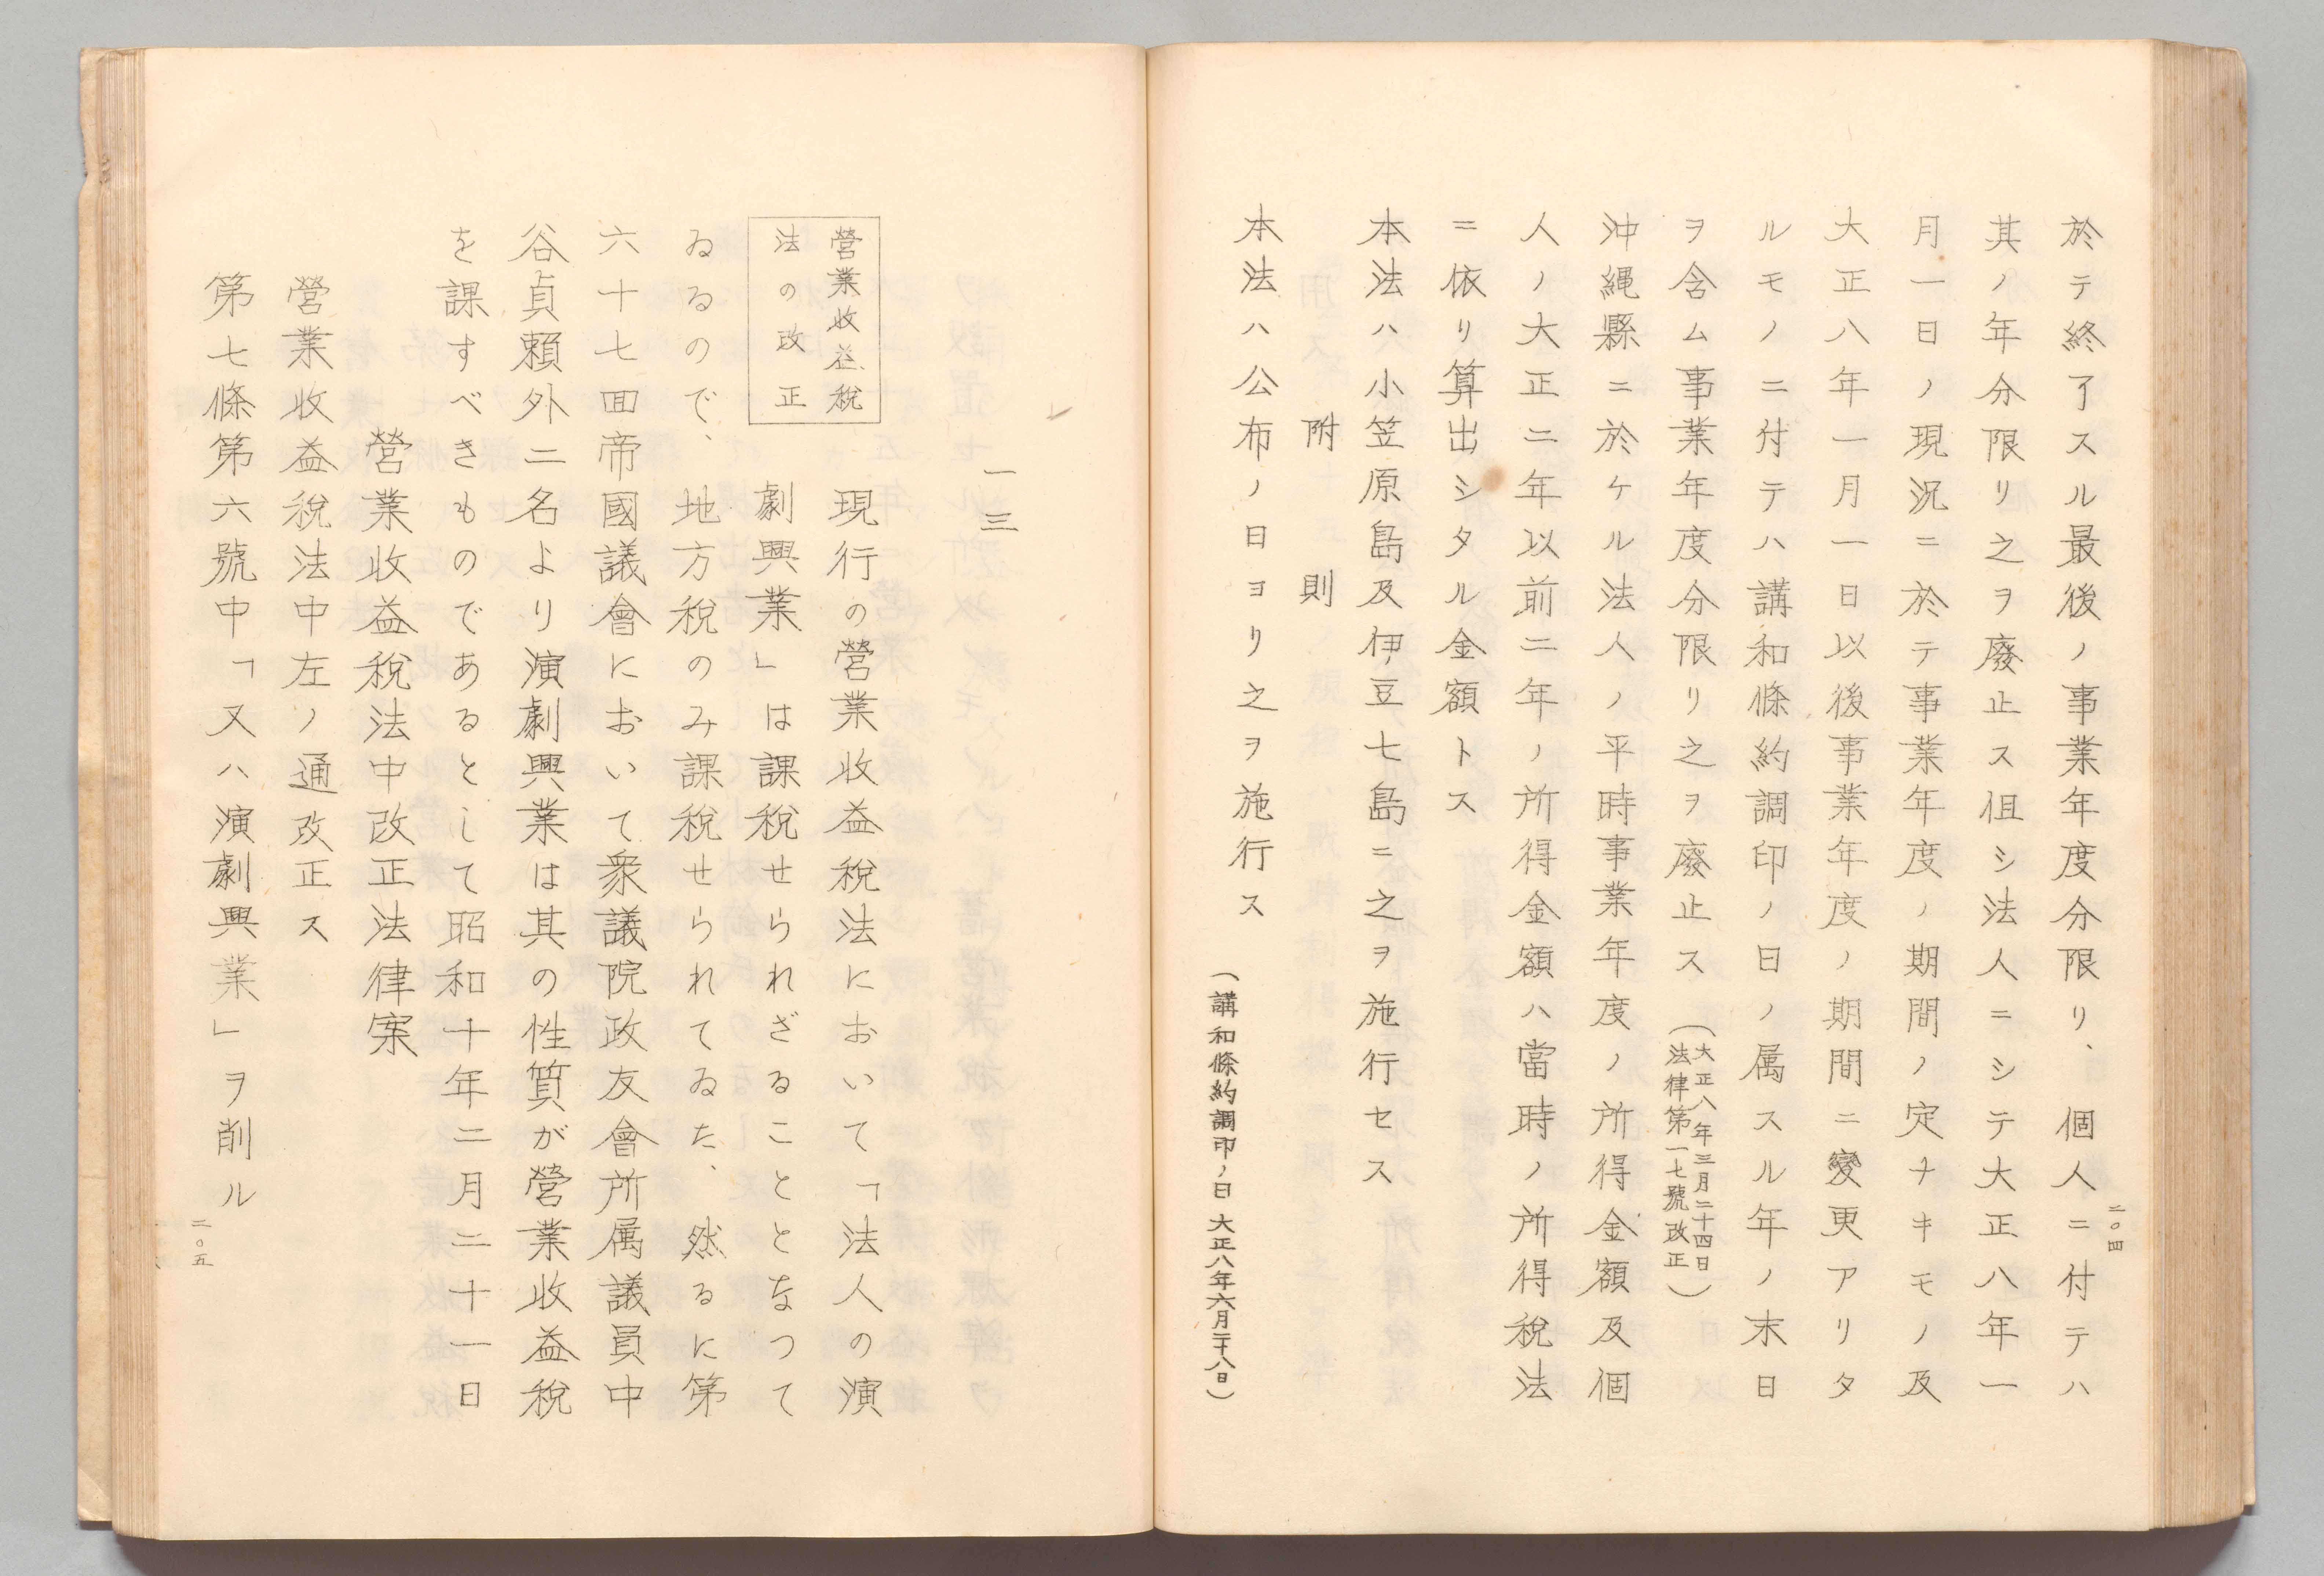 於テ終了スル最後ノ事業年度分限リ、個人ニ付テハ
其ノ年分限リ之ヲ廢止ス伹シ法人ニシテ大正八年一
月一日ノ現況ニ於テ事業年度ノ期間ノ定ナキモノ及
大正八年一月一日以後事業年度ノ期間ニ變更アリタ
ルモノニ付テハ講和條約調印ノ日ノ属スル年ノ末日
ヲ含ム事業年度分限リ之ヲ廢止ス(大正八年三月二十四日
法律第一七號改正)
沖縄縣ニ於ケル法人ノ平時事業年度ノ所得金額及個
人ノ大正二年以前二年ノ所得金額ハ當時ノ所得税法
ニ依リ算出シタル金額トス
本法ハ小笠原島及伊豆七島ニ之ヲ施行セス
附則
本法ハ公布ノ日ヨリ之ヲ施行ス
(講和條約調印ノ日大正八年六月二十八日)
二〇四
一三
營業收益税
法の改正
現行の營業收益税法において「法人の演
劇興業」は課税せられざることとなつて
ゐるので、地方税のみ課税せられてゐた、然るに第
六十七回帝國議會において衆議院政友會所属議員中
谷貞頼外二名より演劇興業は其の性質が營業收益税
を課すべきものであるとして昭和十年二月二十一日
營業收益税法中改正法律案
營業收益税法中左ノ通改正ス
第七條第六號中「又ハ演劇興業」ヲ削ル
二〇五